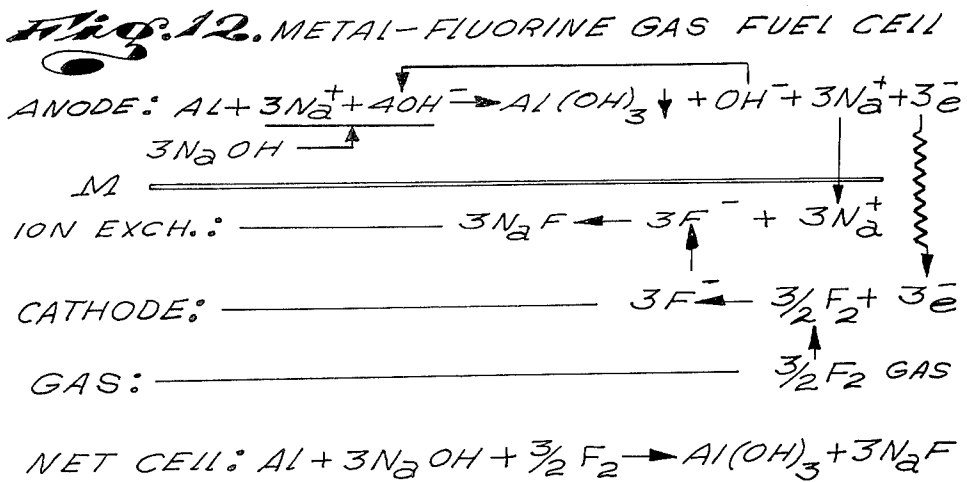 Fig. 12. METAL-FLUORINE GAS FUEL CELL
ANODE: Al + 3Na⁺ + 4OH⁻ → Al(OH)₃ ↓ + OH⁻ + 3Na⁺ + 3e⁻
3NaOH
M
ION EXCH.: 3NaF ← 3F⁻ + 3Na⁺
CATHODE: 3F⁻ ← 3/2 F₂ + 3e⁻
GAS: 3/2 F₂ GAS
NET CELL: Al + 3NaOH + 3/2 F₂ → Al(OH)₃ + 3NaF